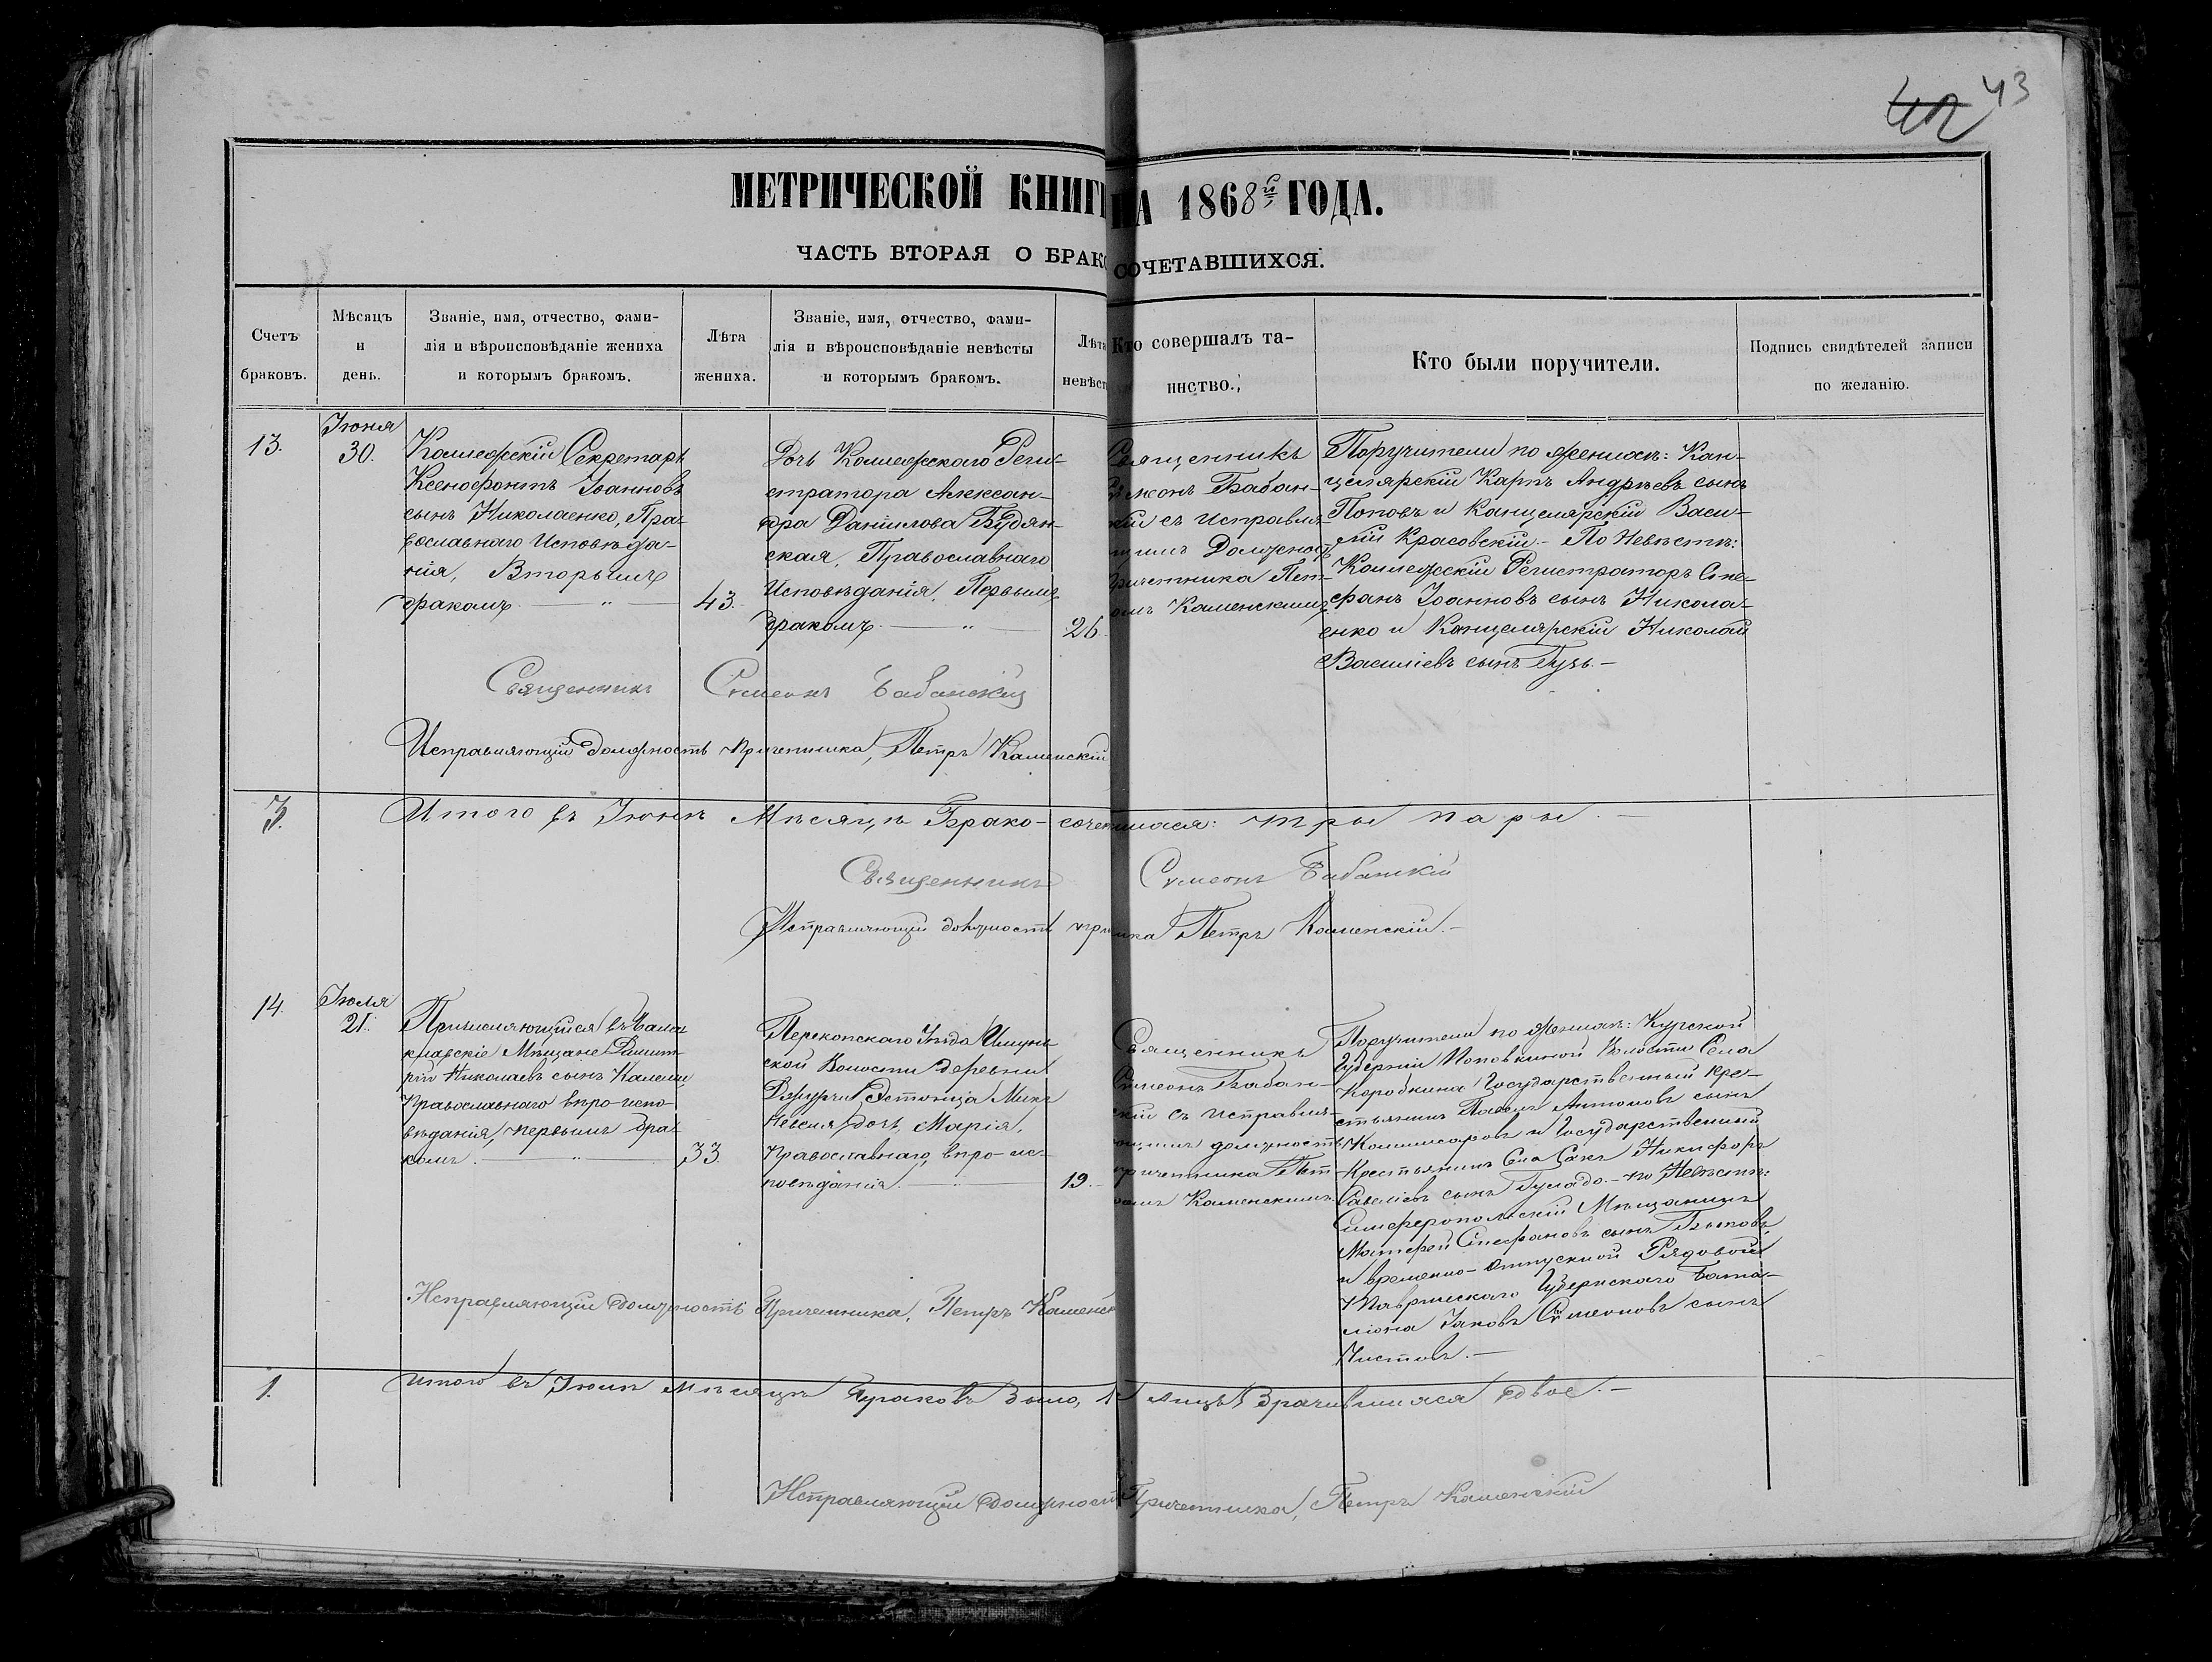 42 43
МЕТРИЧЕСКОЙ КНИГИ НА 1868й ГОДА.
ЧАСТЬ ВТОРАЯ О БРАКОСОЧЕТАВШИХСЯ.
Счетъ
браковъ.
Мѣсяцъ
и
день.
Званіе, имя, отчество, фами-
лія и вѣроисповѣданіе жениха
и которымъ бракомъ.
Лѣта
жениха.
Званіе, имя, отчество, фами-
лія и вѣроисповѣданіе невѣсты
и которымъ бракомъ.
Лѣта
невѣст
Кто совершалъ та-
инство.
Кто были поручители.
Подпись свидѣтелей записи
по желанію.
13.
Іюня
30.
Коллежскій Секретарь
Ксенофонтъ Іоанновъ
сынъ Николаенко, Пра-
вославнаго Исповѣда-
нія, Вторымъ
бракомъ. — " —
43.
Дочь Коллежскаго Реги-
стратора Александра
Даніилова Будян-
ская, Православнаго
Исповѣданія, Первымъ
бракомъ. — " —
26.
Священникъ
Симеонъ Бабан-
скій съ исправля-
ющимъ Должность
Причетника Пет-
ромъ Каменскимъ
Поручители по женихѣ: Кан-
целярскій Карпъ Андрѣевъ сынъ
Поповъ и Канцелярскій Васи-
лій Красовскій. – По Невѣстѣ:
Коллежскій Регистраторъ Сте-
фанъ Іоанновъ сынъ Никола-
енко и Канцелярскій Николай
Василіевъ сынъ Гузь. –
Священникъ Симеонъ Бабанскій
Исправляющій должность причетника, Петръ Каменскій
3. Итого въ Іюнѣ Мѣсяцѣ Брако-сочеталися: три пары. –
Священникъ Симеонъ Бабанскій
Исправляющій должность при ика Петръ Каменскій. –
14.
Іюля
21.
Причисляющійся въ Бала-
клавскіе Мѣщане Димит-
рій Николаевъ сынъ
Православнаго вѣро-испо-
вѣданія, первымъ бра-
комъ. — " —
33.
Перекопскаго Уѣзда
ской Волости деревни
Эстонца
дочь, Марія,
Православнаго, вѣро-ис-
повѣданія. — " —
19.
Священникъ
Симеонъ Бабан-
скій съ исправля-
ющимъ должность
причетника Пет-
ромъ Каменскимъ.
Поручители по женихѣ: Курской
Губерніи Поповкиной Волости Села
Коробкина Государственный кре-
стьянинъ Павелъ Антоновъ сынъ
Коммисаровъ и Государственный
Крестьянинъ Села Сакъ Никифоръ
Савеліевъ сынъ – по Невѣстѣ:
Симферопольскій Мѣщанинъ
Матфей Стефановъ сынъ
и временно-отпускной Рядовой
Таврическаго Губернскаго Бата-
ліона Іаковъ Симеоновъ сынъ
Чистовъ. –
Исправляющій должность Причетника, Петръ Каменск
1. Итого въ Іюлѣ мѣсяцѣ браковъ было, 1 лицъ Брачившихся двое. –
Исправляющій должность Причетника, Петръ Каменскій